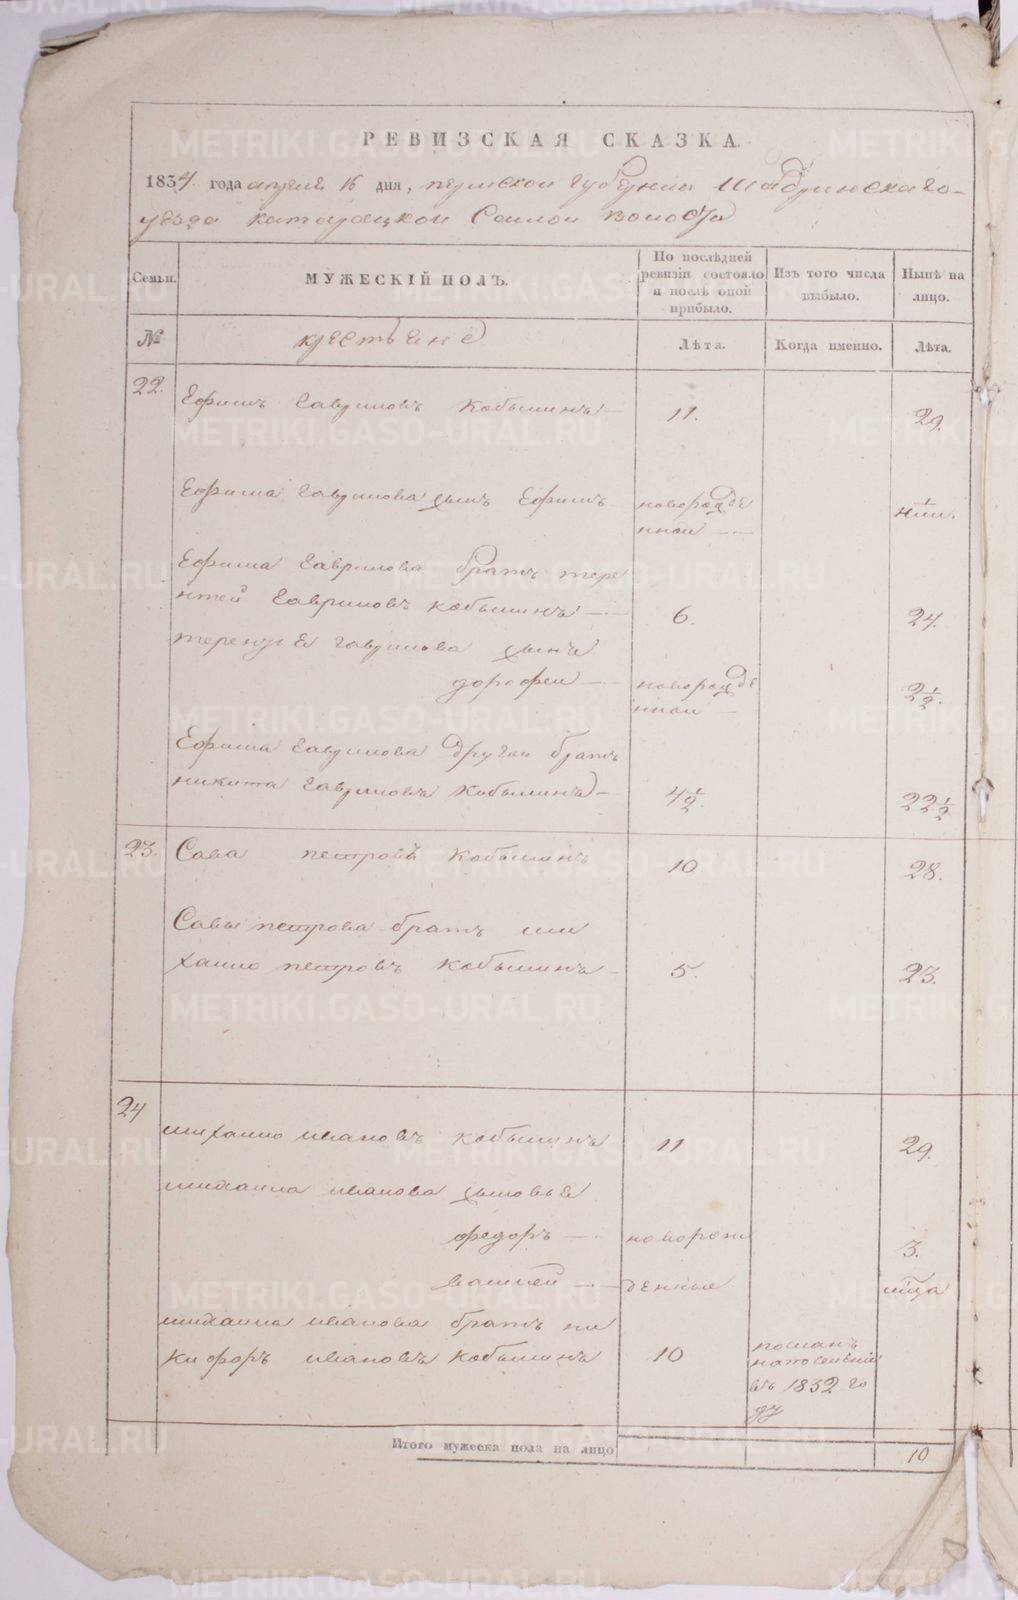 РЕВИЗСКАЯ СКАЗКА.
1834 года апреля 16 дня, пермской губернии Шадринскаго
уезда катайской Самой волости
Семьи.
МУЖЕСКІЙ ПОЛЪ.
По послѣдней ревизіи состояло и послѣ оной прибыло.
Изъ того числа выбыло.
Нынѣ на лицо.
№
крестьяне
Лѣта.
Когда именно.
Лѣта.
22. Ефимъ Гавриловъ Кобылинъ 11. 29.
Ефима Гаврилова сынъ Ефимъ новорожде
нной
Ефима Гаврилова братъ тере
нтей Гавриловъ кобылинъ 6. 24.
терентья гаврилова сынъ
дорофеи новорожде 2½.
нной
Ефима Гаврилова другой братъ
никита Гавриловъ Кобылинъ 4½. 22½
23. Сава петровъ Кобылинъ 10 28.
Савы петрова братъ ми
хаило петровъ Кобылинъ 5. 23.
24 михаило ивановъ кобылинъ 11 29.
михаила иванова сыновья
федоръ новорож 3.
василей денные
михаила иванова братъ ни
кифоръ ивановъ кобылинъ 10 посланъ
на поселение
въ 1832 го
ду
Итого мужеска пола на лицо 10
METRIKI.GASO-URAL.RU